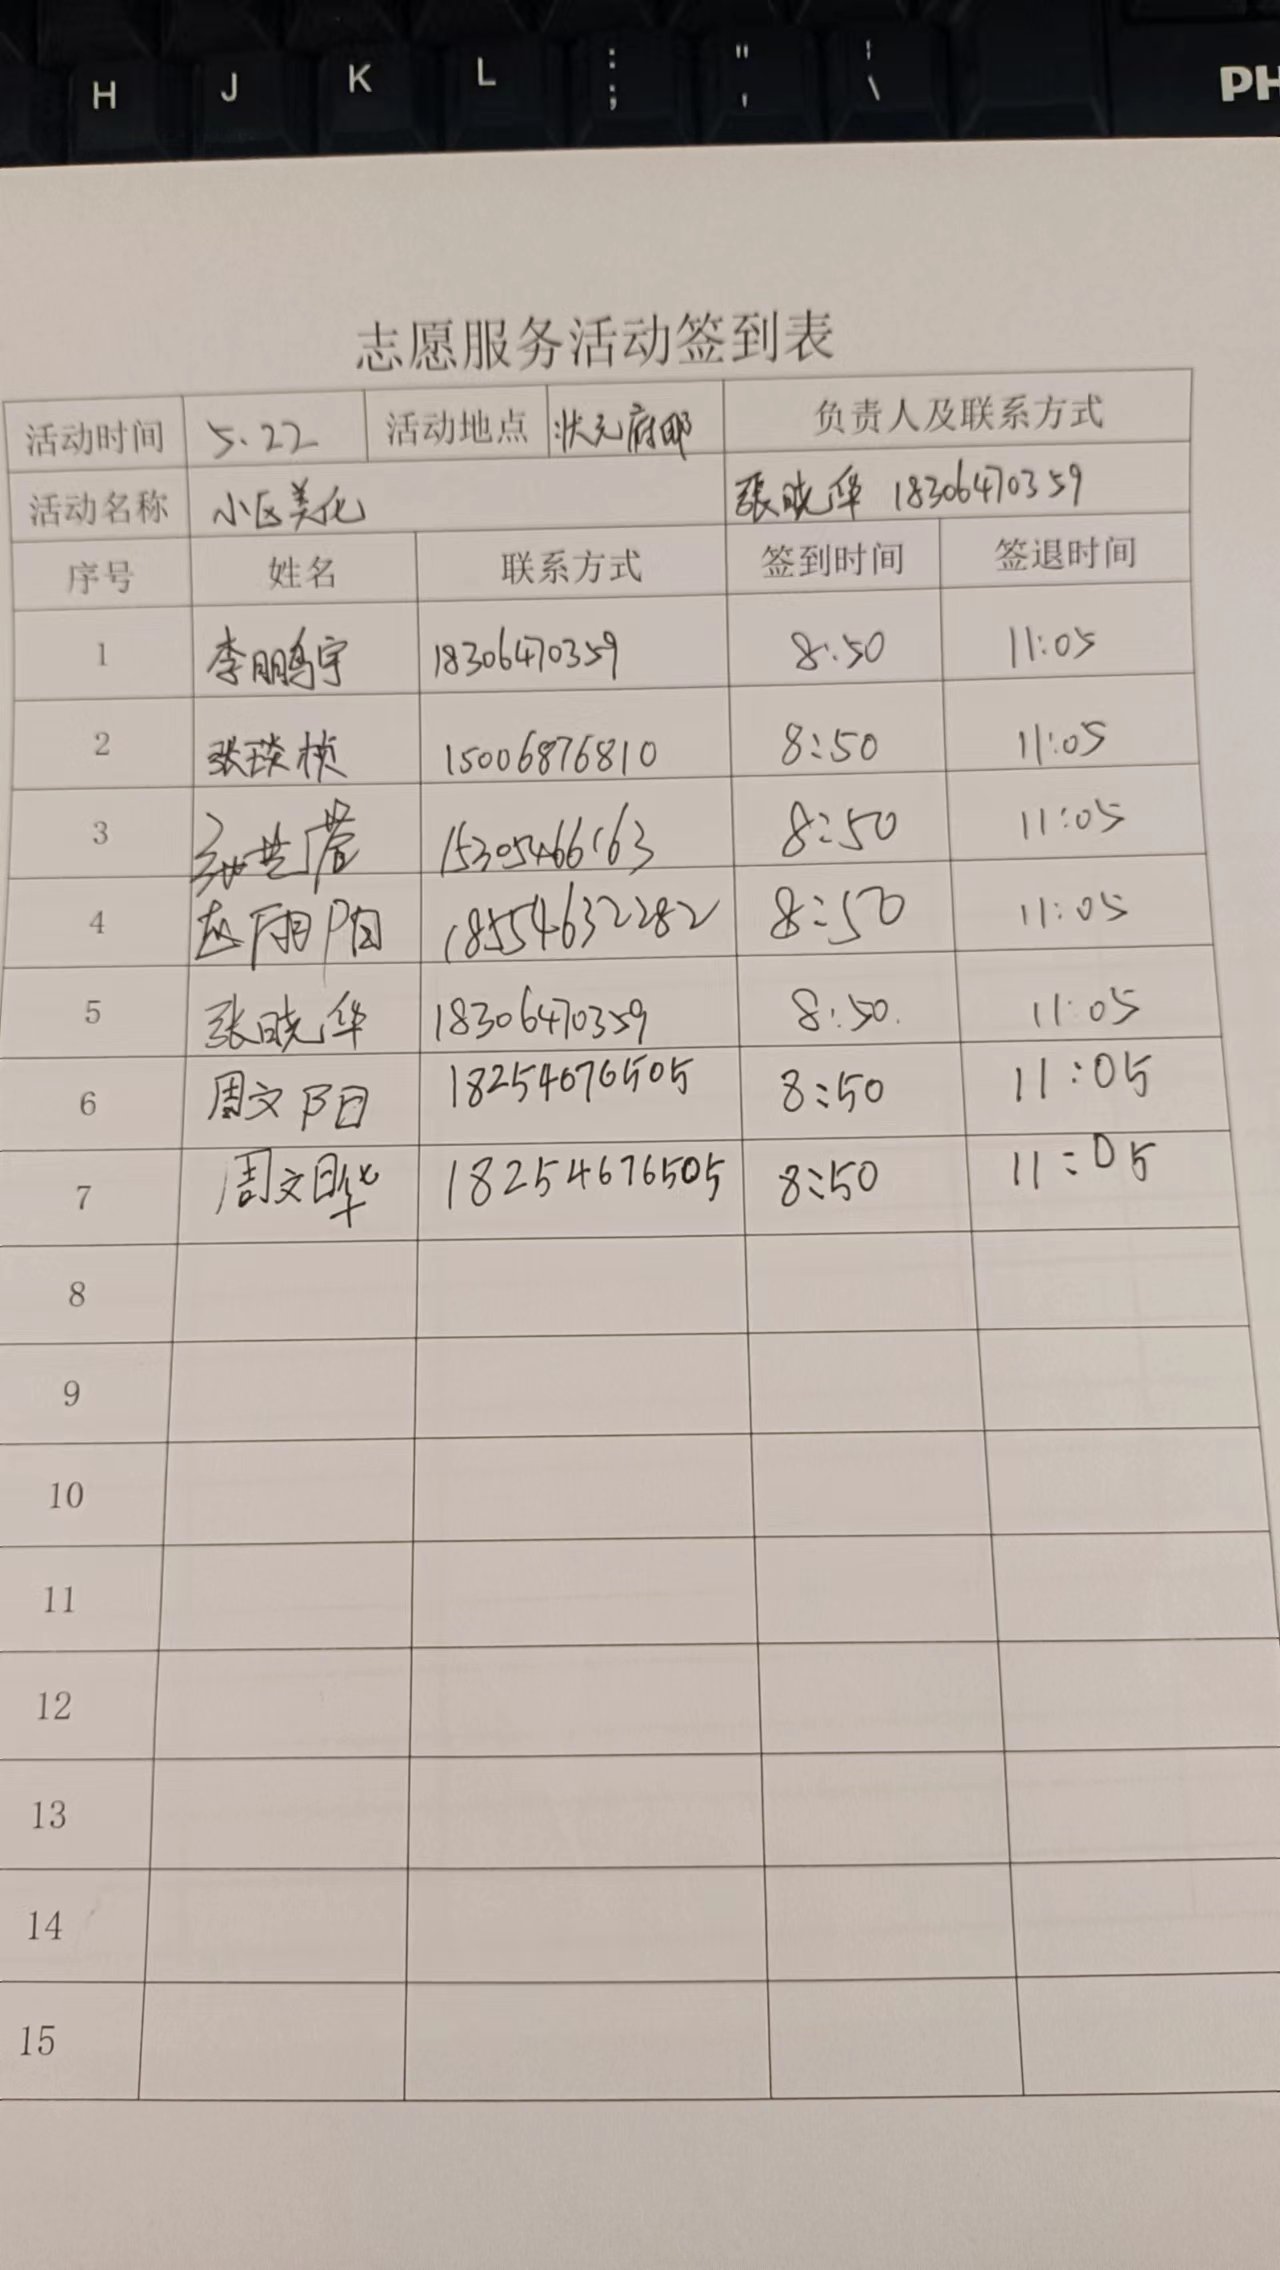 H J K L : ; " ' ¦ \ PH
志愿服务活动签到表
活动时间 5.22 活动地点 状元府邸 负责人及联系方式
活动名称 小区美化 張晓华 18306470359
序号 姓名 联系方式 签到时间 签退时间
1 李鹏宇 18306470359 8:50 11:05
2 张琰桢 15006876810 8:50 11:05
3 15305466163 8:50 11:05
4 赵雨陌 18554632282 8:50 11:05
5 张晓华 18306470359 8:50 11:05
6 周文阳 18254676505 8:50 11:05
7 周文晔 18254676505 8:50 11:05
8
9
10
11
12
13
14
15